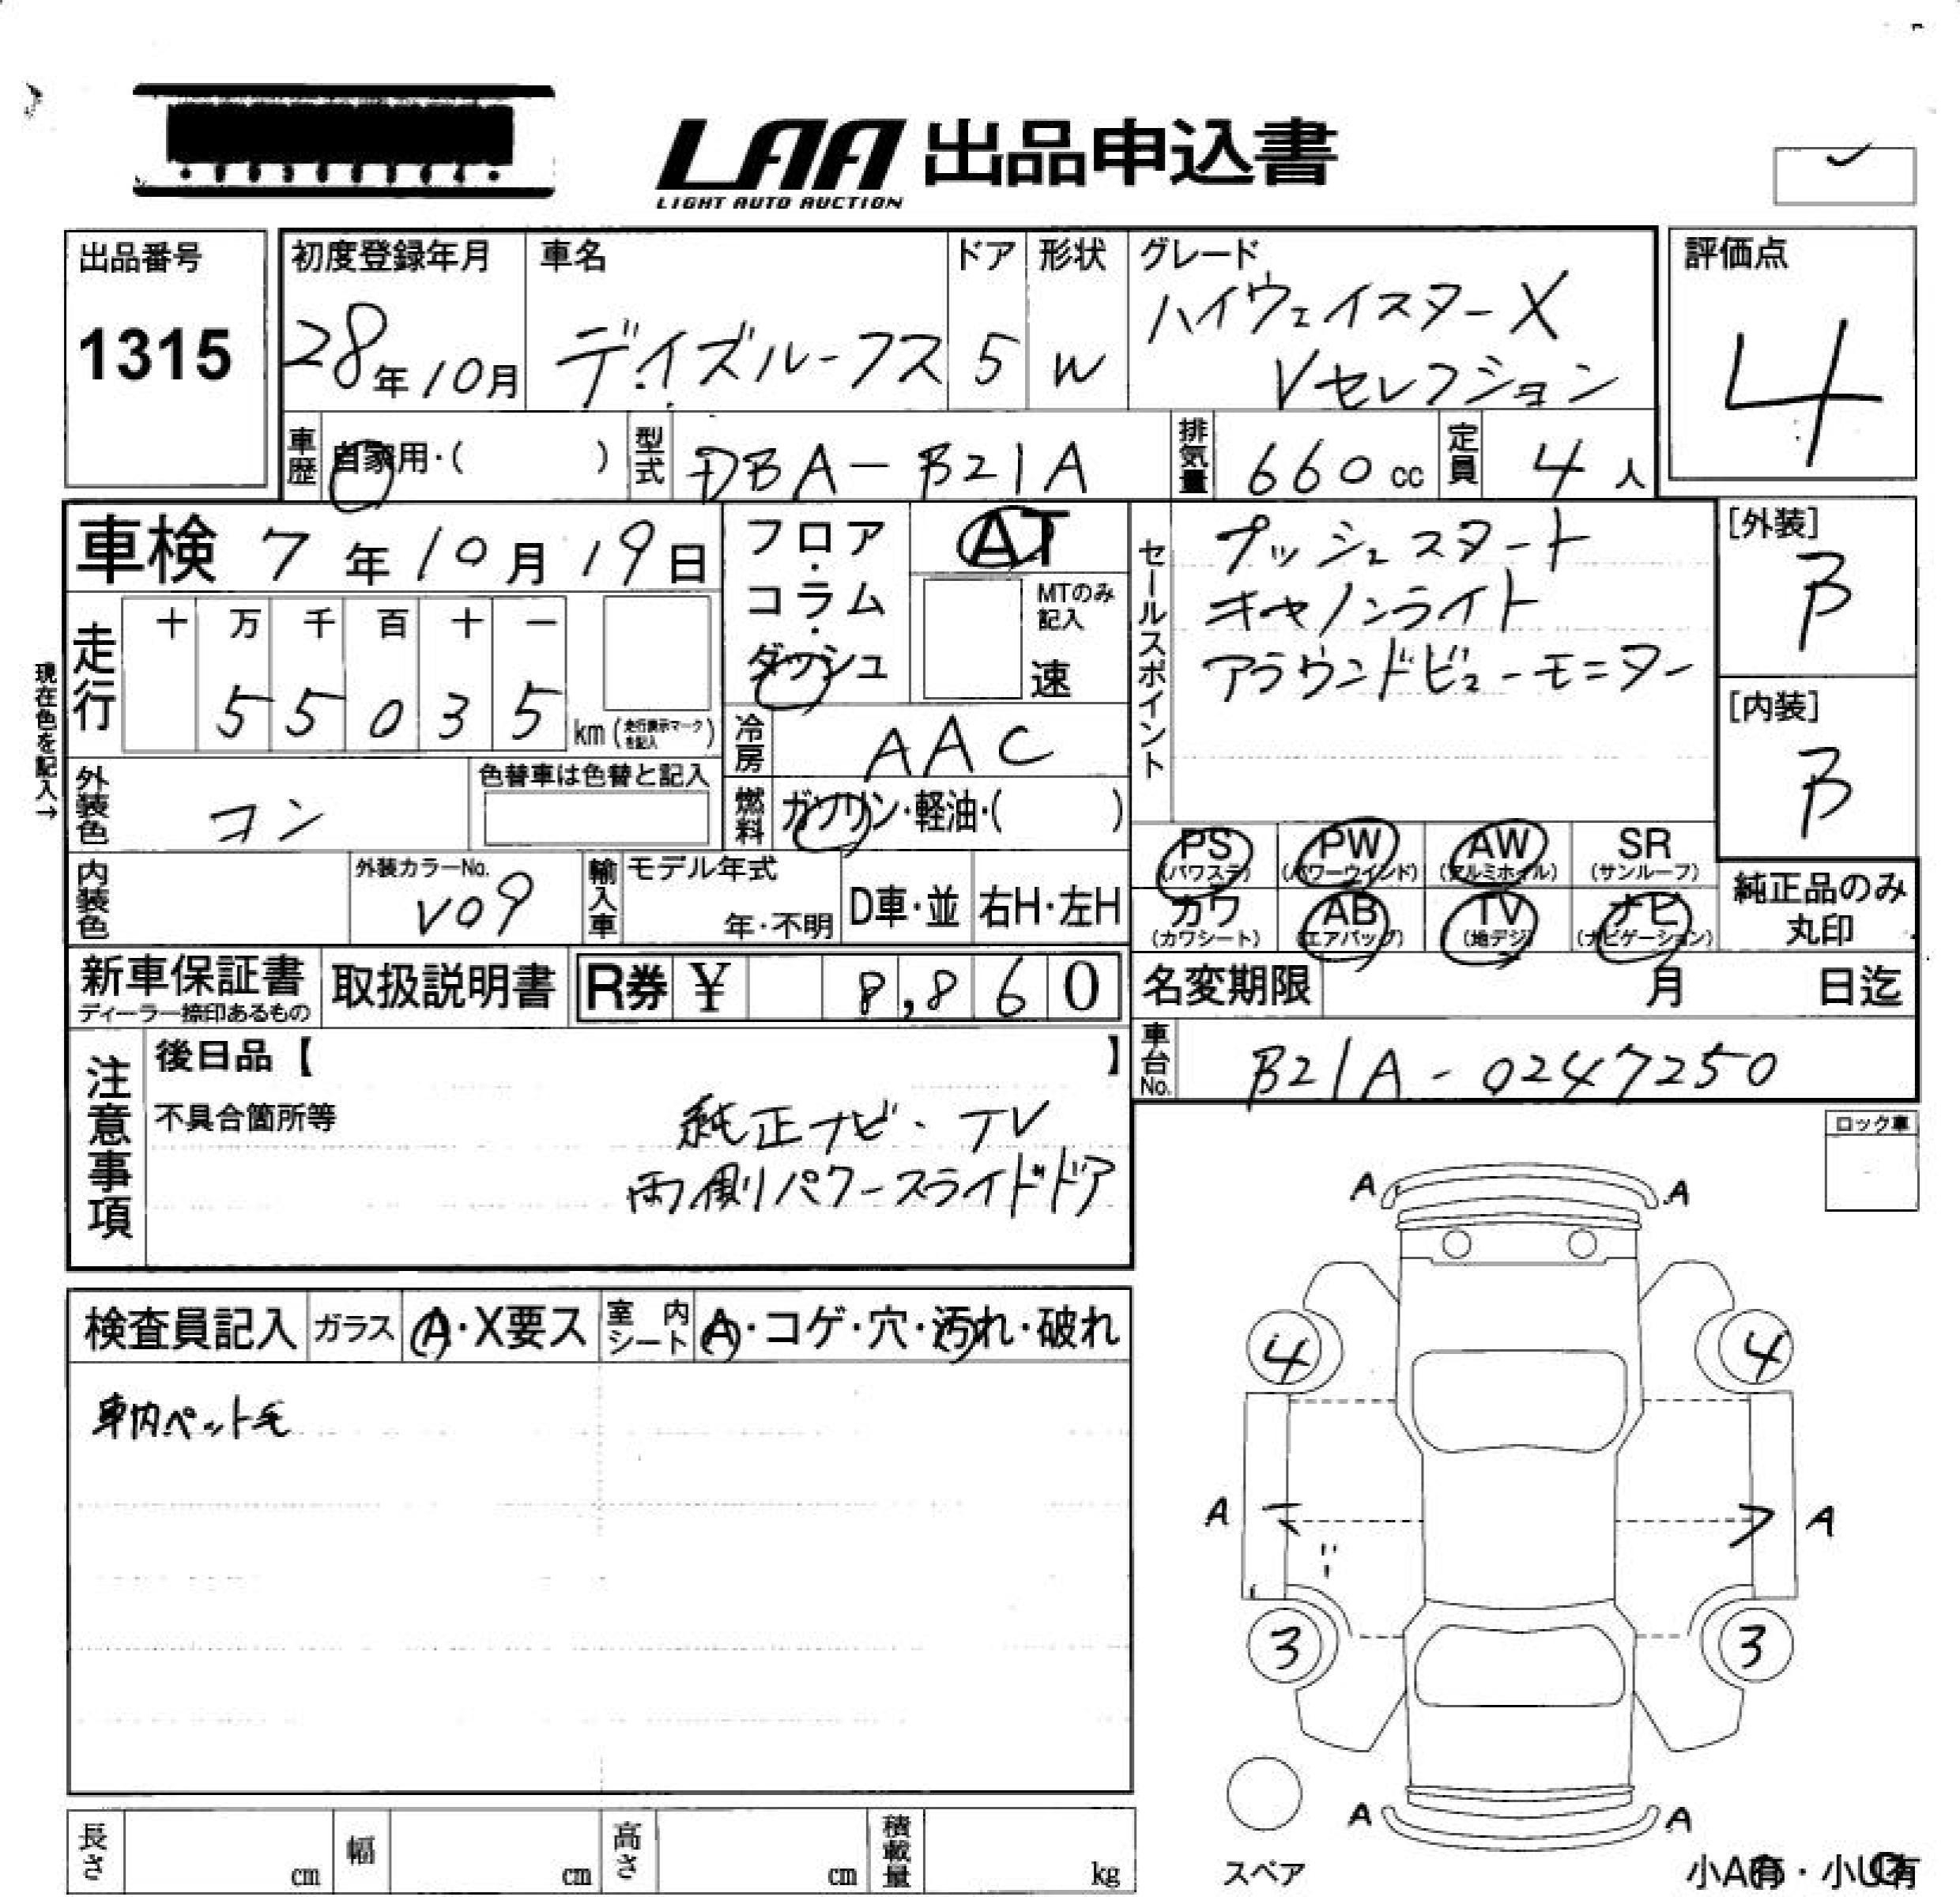 LAA 出品申込書
LIGHT AUTO AUCTION
出品番号
1315
初度登録年月
28年10月
車名
デイズルークス
ドア
5
形状
W
グレード
ハイウェイスターX
Vセレクション
評価点
4
車歴
自家用・( )
型式
DBA-B21A
排気量
660 cc
定員
4 人
車検 7年10月19日
フロア・コラム・ダッシュ
AT
MTのみ
記入
速
セールスポイント
プッシュスタート
キセノンライト
アラウンドビューモニター
[外装]
B
[内装]
B
現在色を記入→
走行
十 万 千 百 十 一
5 5 0 3 5
km (走行表示マークを記入)
冷房
AAC
外装色
コン
色替車は色替と記入
燃料
ガソリン・軽油・( )
PS (パワステ)
PW (パワーウインド)
AW (アルミホイル)
SR (サンルーフ)
内装色
外装カラーNo.
V09
輸入車
モデル年式
年・不明
D車・並
右H・左H
カワ (カワシート)
AB (エアバッグ)
TV (地デジ)
ナビ (ナビゲーション)
純正品のみ
丸印
新車保証書
ディーラー捺印あるもの
取扱説明書
R券 ¥ 8,860
名変期限 月 日迄
車台No.
B21A-0247250
注意事項
後日品【 】
不具合箇所等
純正ナビ・TV
両側パワースライドドア
ロック車
検査員記入
ガラス
A・X要ス
室内シート
A・コゲ・穴・汚れ・破れ
車内ペット毛
A A
4 4
A A
3 3
A A
スペア
小A有・小U有
長さ cm
幅 cm
高さ cm
積載量 kg